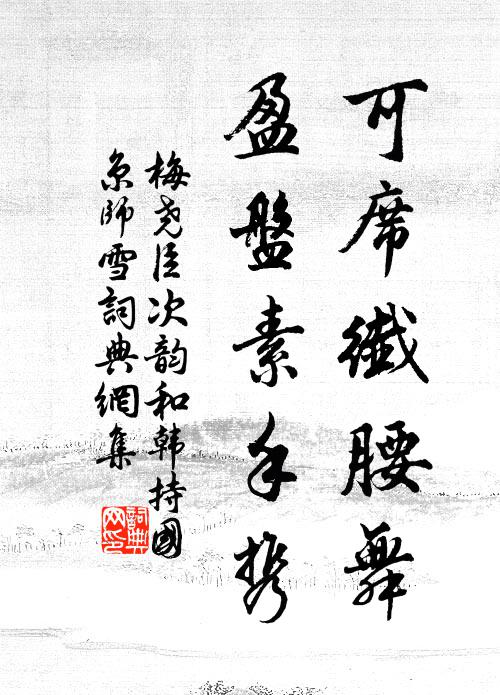 可席纖腰舞
盈盤素手携
梅尧臣次韵和韩持國
京師雪詞典網集
詞典网印